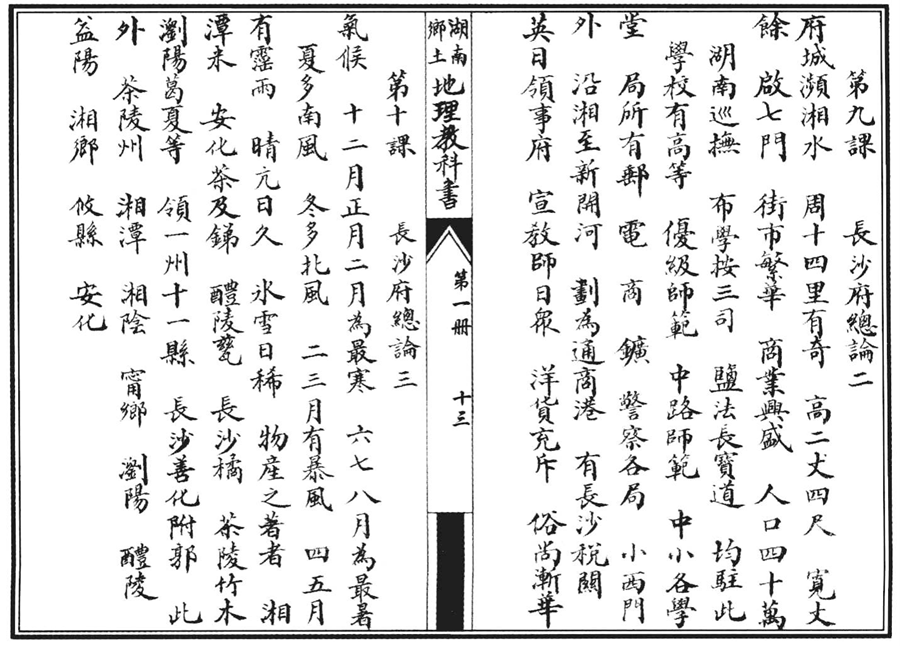 第九課　長沙府總論二
府城瀕湘水　周十四里有奇　高二丈四尺　寬丈
餘　啟七門　街市繁華　商業興盛　人口四十萬
湖南巡撫　布學按三司　鹽法長寶道　均駐此
學校有高等　優級師範　中路師範　中小各學
堂　局所有郵　電　商　鑛　警察各局　小西門
外　沿湘至新開河　劃為通商港　有長沙稅關
英日領事府　宣教師日眾　洋貨充斥　俗尚漸華
湖南鄉土地理教科書　第一册　十三
第十課　長沙府總論三
氣候　十二月正月二月為最寒　六七八月為最暑
夏多南風　冬多北風　二三月有暴風　四五月
有靈雨　晴亢日久　氷雪日稀　物産之著者　湘
潭米　安化茶及銻　醴陵甕　長沙橘　茶陵竹木
瀏陽葛夏等　領一州十一縣　長沙善化附郭　此
外　茶陵州　湘潭　湘陰　甯鄉　瀏陽　醴陵
益陽　湘鄉　攸縣　安化